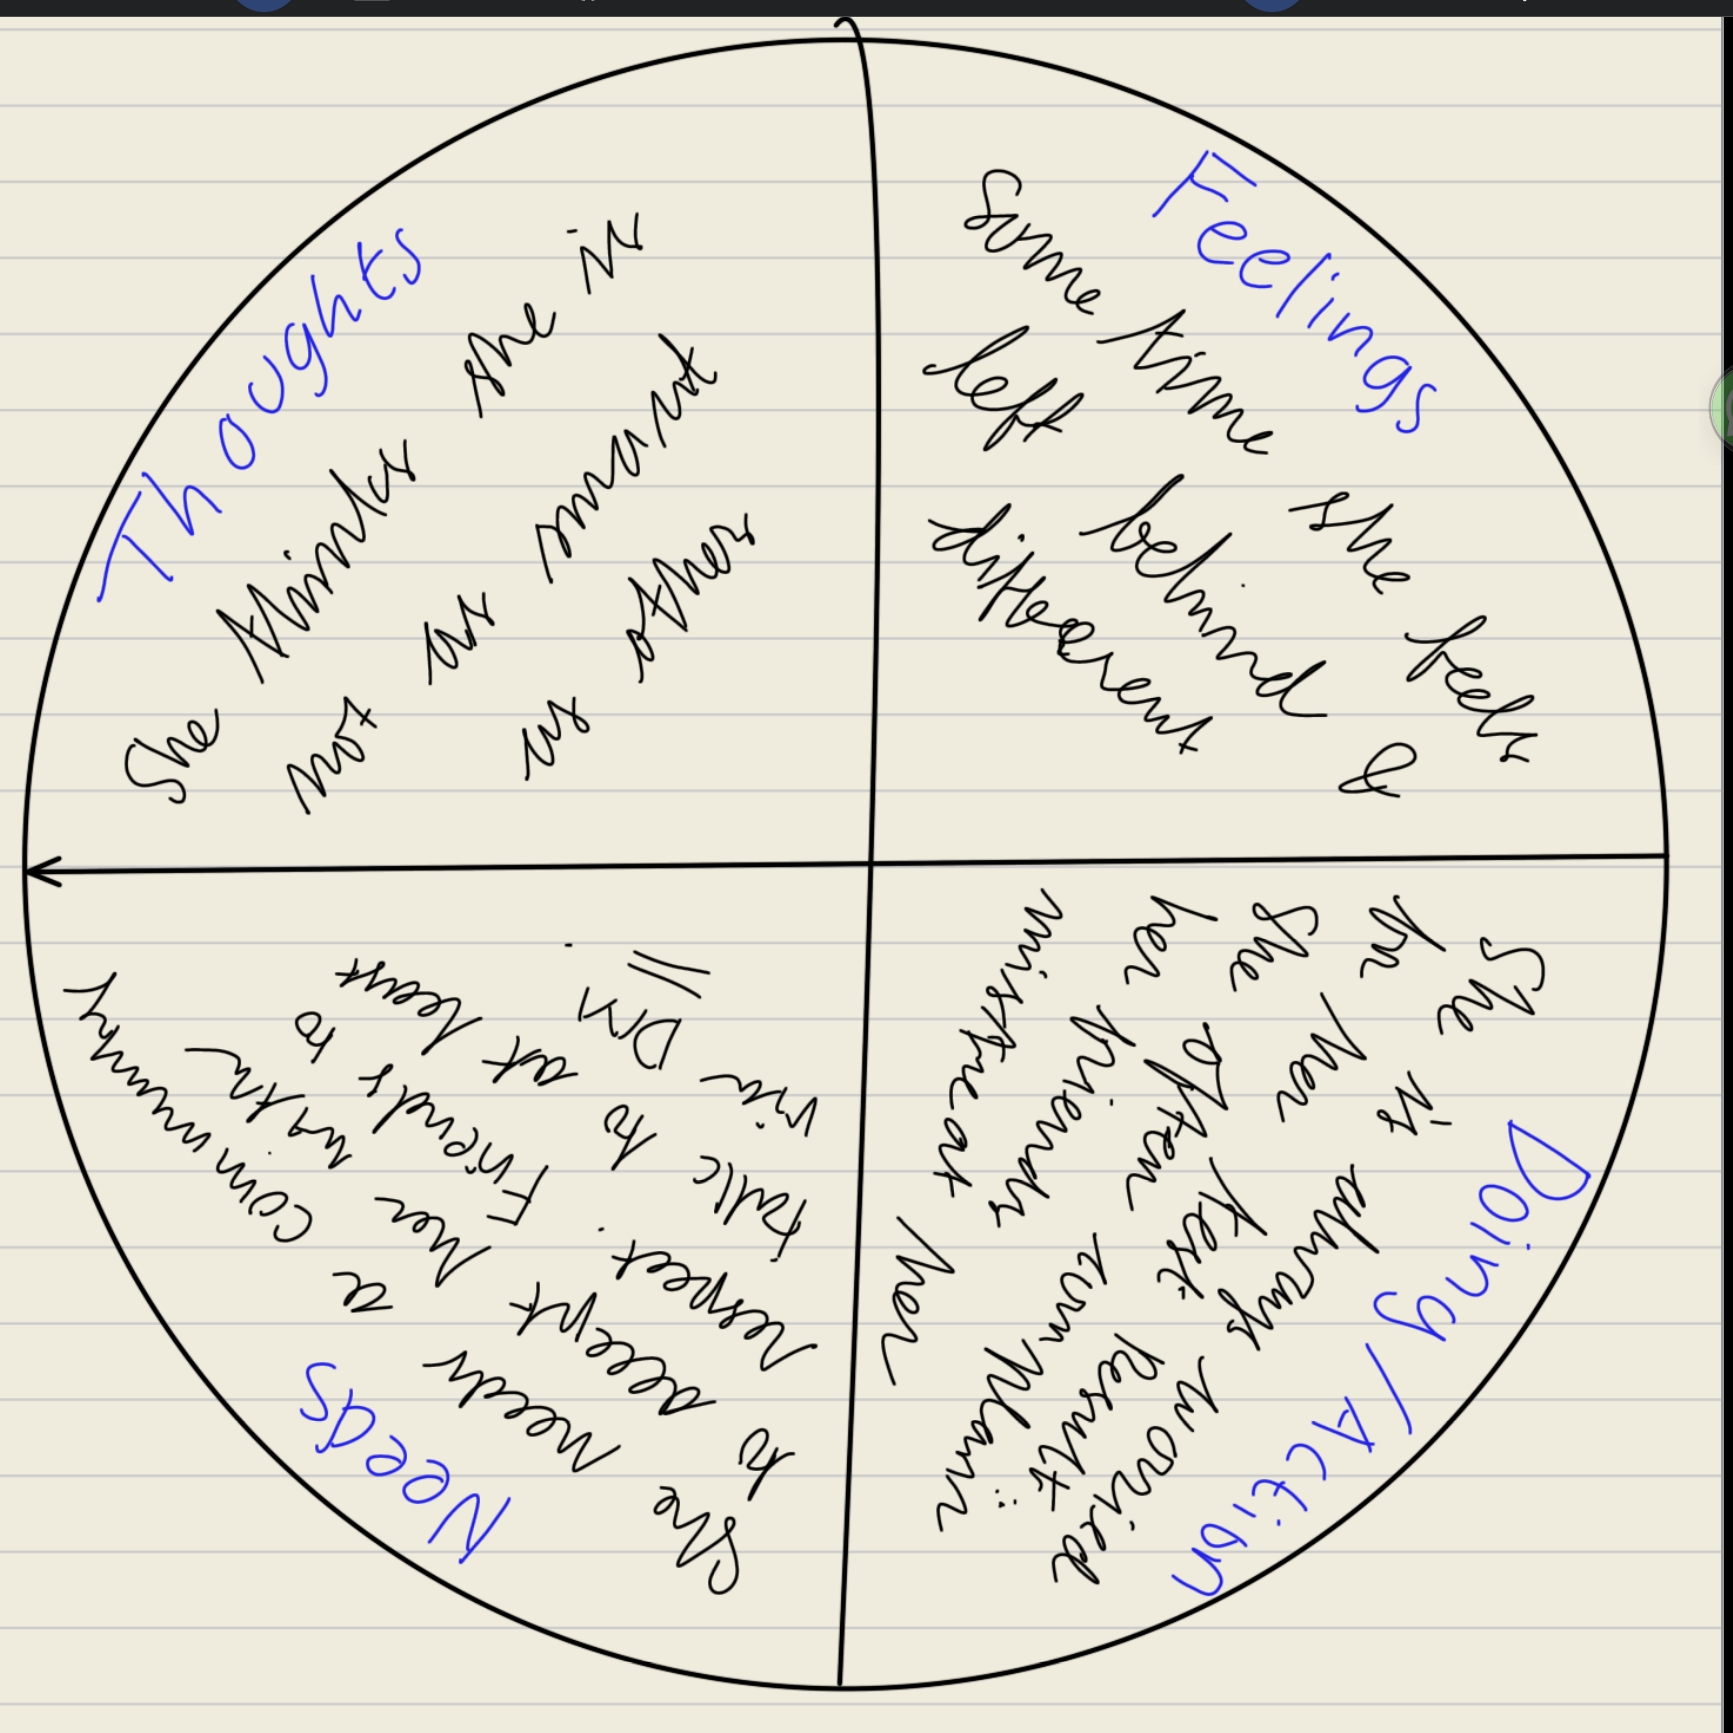 Thoughts
She thinks she is
not as smart
as other
Feelings
Some time she feels
left behind &
different
Doing / Action
She is worried
for her result
She often complain
her friends
mistreat her
Needs
She needs a community
to accept her
respect. Friends to
to at least
DM